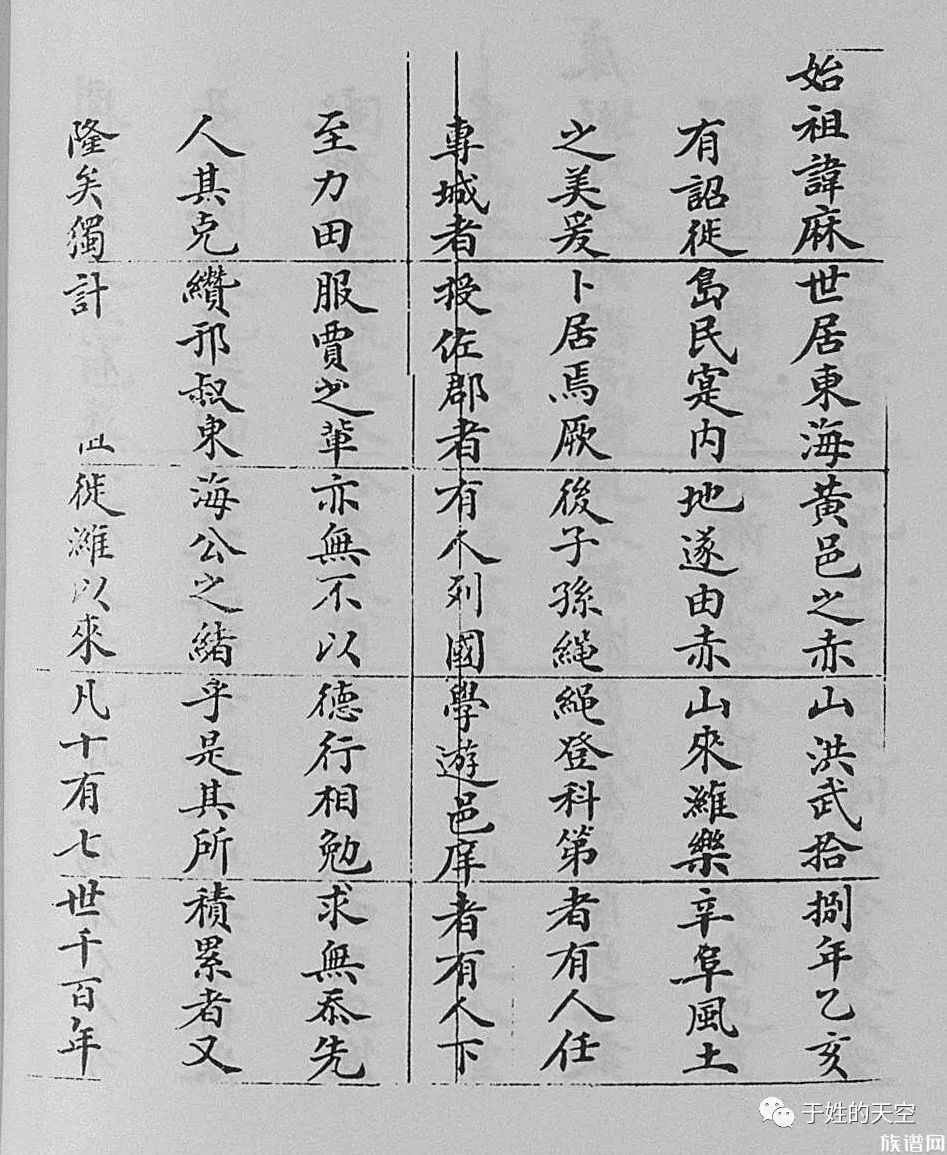 始祖諱麻世居東海黃邑之赤山洪武拾捌年乙亥
有詔徙島民寔内地遂由赤山來濰樂辛阜風土
之美爰卜居焉厥後子孫繩繩登科第者有人任
專城者授佐郡者有人列國學遊邑庠者有人下
至力田服賈之輩亦無不以德行相勉求無忝先
人其克纘邢叔東海公之緒乎是其所積累者又
隆矣獨計徙濰以來凡十有七世千百年
于姓的天空
族谱网